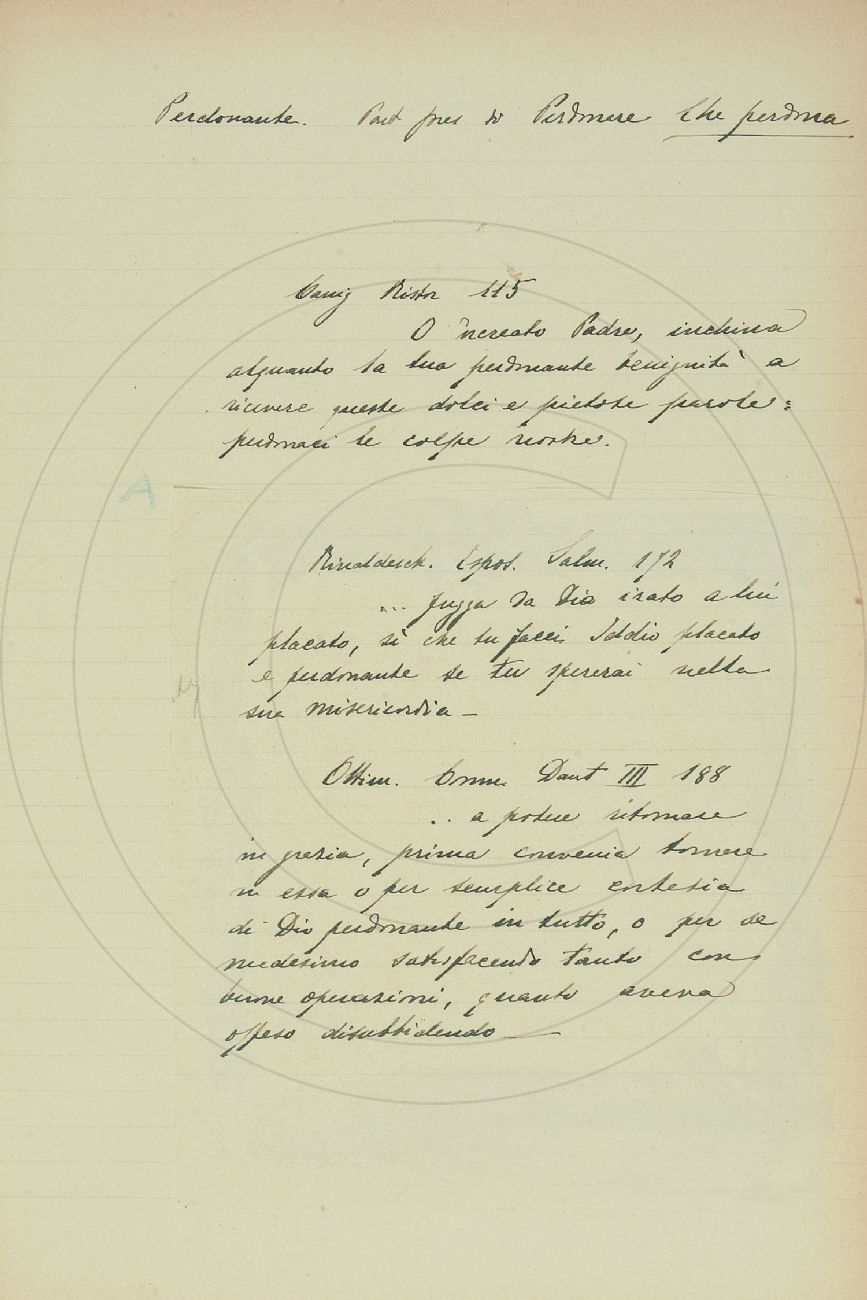 Perdonante. Part pres di Perdonare Che perdona
Canig Ristor 115
O 'ncreato Padre, inchina
alquanto la tua perdonante benignità a
ricevere queste dolci e pietose parole:
perdonaci le colpe nostre.
A
Rinaldesch. Espos. Salm. 172
... fugga da Dio irato a lui
placato, sì che tu facci Iddio placato
e perdonante se tu spererai nella
sua misericordia –
Ottim. Comm. Dant III 188
.. a poter ritornare
in grazia, prima convenia tornare
in essa o per semplice cortesia
di Dio perdonante in tutto, o per se
medesimo satisfacendo tanto con
buone operazioni, quanto aveva
offeso disubbidendo —